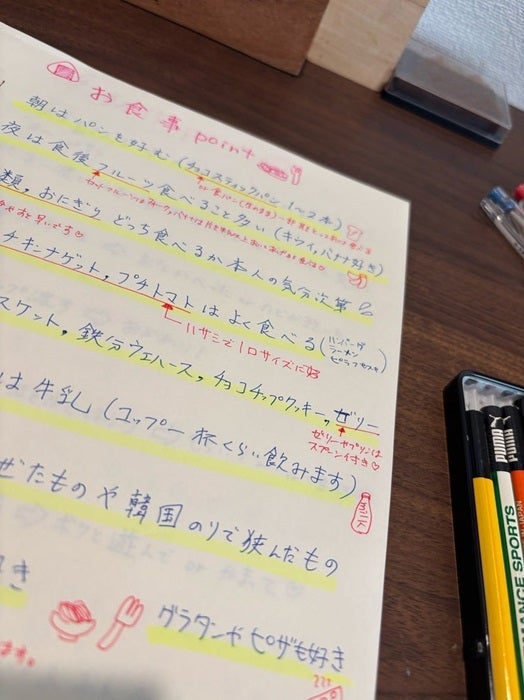 お食事 point
朝はパンも好む(チョコスティックパン 1〜2本)
夜は食後フルーツ食べること多い(キウイ,バナナ好き)
類,おにぎり どっち食べるか本人の気分次第
チキンナゲット,プチトマトはよく食べる(ハンバーグ ラーメン
ハサミで1口サイズに
スケット,鉄分ウエハース,チョコチップクッキー,ゼリー
ゼリーやプリンは
スプーン付き♡
は牛乳(コップ一杯くらい飲みます)
ミルク
ぜたものや韓国のりで挟んだもの
き
グラタンやピザも好き
ます。
PUMA
PUMA
MANCE SPORTS
JAPAN